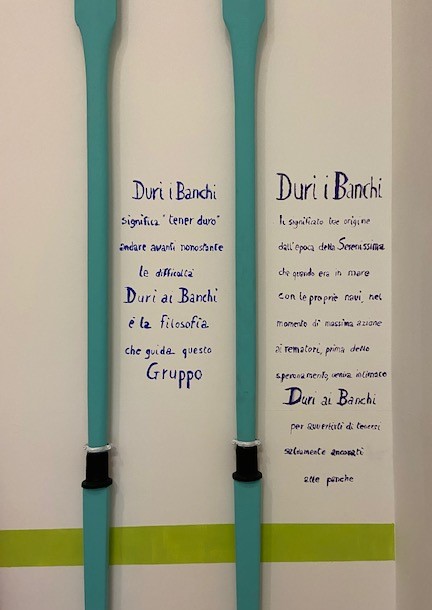 Duri i Banchi
significa "tener duro"
andare avanti nonostante
le difficoltà
Duri ai Banchi
è la filosofia
che guida questo
Gruppo
Duri i Banchi
Il significato trae origine
dall'epoca della Serenissima
che quando era in mare
con le proprie navi, nel
momento di massima azione
ai rematori, prima dello
speronamento, veniva intimato
Duri ai Banchi
per avvertirli di tenersi
saldamente ancorati
alle panche